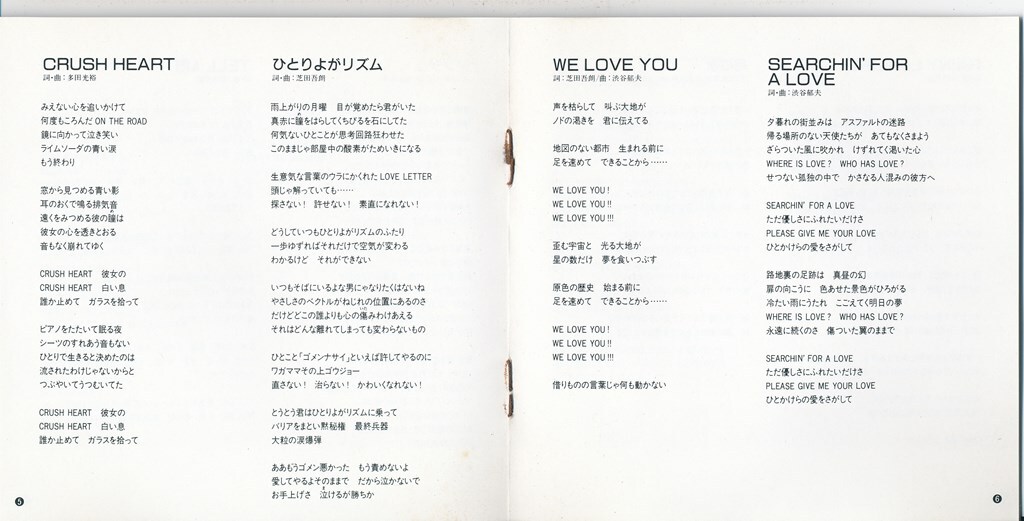 CRUSH HEART
詞・曲：多田光裕
みえない心を追いかけて
何度もころんだ ON THE ROAD
鏡に向かって泣き笑い
ライムソーダの青い涙
もう終わり
窓から見つめる青い影
耳のおくで鳴る排気音
遠くをみつめる彼の瞳は
彼女の心を透きとおる
音もなく崩れてゆく
CRUSH HEART　彼女の
CRUSH HEART　白い息
誰か止めて　ガラスを拾って
ピアノをたたいて眠る夜
シーツのすれあう音もない
ひとりで生きると決めたのは
流されたわけじゃないからと
つぶやいてうつむいてた
CRUSH HEART　彼女の
CRUSH HEART　白い息
誰か止めて　ガラスを拾って
❺
ひとりよがリズム
詞・曲：芝田吾朗
雨上がりの月曜　目が覚めたら君がいた
真赤に瞳をはらしてくちびるを石にしてた
何気ないひとことが思考回路狂わせた
このままじゃ部屋中の酸素がためいきになる
生意気な言葉のウラにかくれた LOVE LETTER
頭じゃ解っていても……
探さない！　許せない！　素直になれない！
どうしていつもひとりよがリズムのふたり
一歩ゆずればそれだけで空気が変わる
わかるけど　それができない
いつもそばにいるよな男にゃなりたくはないね
やさしさのベクトルがねじれの位置にあるのさ
だけどどこの誰よりも心の傷みわけあえる
それはどんな離れてしまっても変わらないもの
ひとこと「ゴメンナサイ」といえば許してやるのに
ワガママその上ゴウジョー
直さない！　治らない！　かわいくなれない！
とうとう君はひとりよがリズムに乗って
バリアをまとい黙秘権　最終兵器
大粒の涙爆弾
ああもうゴメン悪かった　もう責めないよ
愛してやるよそのままで　だから泣かないで
お手上げさ　泣けるが勝ちか
WE LOVE YOU
詞：芝田吾朗/曲：渋谷郁夫
声を枯らして　叫ぶ大地が
ノドの渇きを　君に伝えてる
地図のない都市　生まれる前に
足を速めて　できることから……
WE LOVE YOU !
WE LOVE YOU !!
WE LOVE YOU !!!
歪む宇宙と　光る大地が
星の数だけ　夢を食いつぶす
原色の歴史　始まる前に
足を速めて　できることから……
WE LOVE YOU !
WE LOVE YOU !!
WE LOVE YOU !!!
借りものの言葉じゃ何も動かない
SEARCHIN' FOR
A LOVE
詞・曲：渋谷郁夫
夕暮れの街並みは　アスファルトの迷路
帰る場所のない天使たちが　あてもなくさまよう
ざらついた風に吹かれ　けずれてく渇いた心
WHERE IS LOVE ?　WHO HAS LOVE ?
せつない孤独の中で　かさなる人混みの彼方へ
SEARCHIN' FOR A LOVE
ただ優しさにふれたいだけさ
PLEASE GIVE ME YOUR LOVE
ひとかけらの愛をさがして
路地裏の足跡は　真昼の幻
扉の向こうに　色あせた景色がひろがる
冷たい雨にうたれ　こごえてく明日の夢
WHERE IS LOVE ?　WHO HAS LOVE ?
永遠に続くのさ　傷ついた翼のままで
SEARCHIN' FOR A LOVE
ただ優しさにふれたいだけさ
PLEASE GIVE ME YOUR LOVE
ひとかけらの愛をさがして
❻